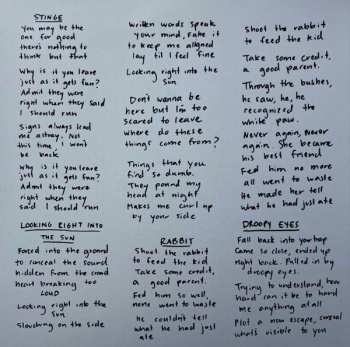 STINGE
You may be the
one for good
there's nothing to
think but that
Why is it you leave
just as it gets fun?
Admit they were
right when they said
I should run
Signs always lead
me astray. Not
this time, I won't
be back
Why is it you leave
just as it gets fun?
Admit they were
right when they
said I should run
LOOKING RIGHT INTO
THE SUN
Forced into the ground
to conceal the sound
hidden from the crowd
heart breaking too
LOUD
Looking right into the
Sun
Slouching on the side
Written words speak
your mind, fake it
to keep me aligned
lay til I feel fine
Looking right into the
Sun
Don't wanna be
here but I'm too
scared to leave
Where do these
things come from?
Things that you
find so dumb.
They pound my
head at night
Makes me curl up
by your side
RABBIT
Shoot the rabbit
to feed the kid
Take some credit,
a good parent.
Fed him so well,
none went to waste
He couldn't tell
what he had just
ate
Shoot the rabbit
to feed the kid
Take some credit,
a good parent.
Through the bushes,
he saw, he, he
recognized the
white paw.
Never again, Never
again. She became
his best friend
Fed him no more
all went to waste
He made her tell
what he had just ate
DROOPY EYES
Fall back into your lap
Came so close, ended up
right back. Pulled in by
droopy eyes.
Trying to understand, how
hard can it be to hand
me anything at all
Plot a new escape, conceal
what's visible to you